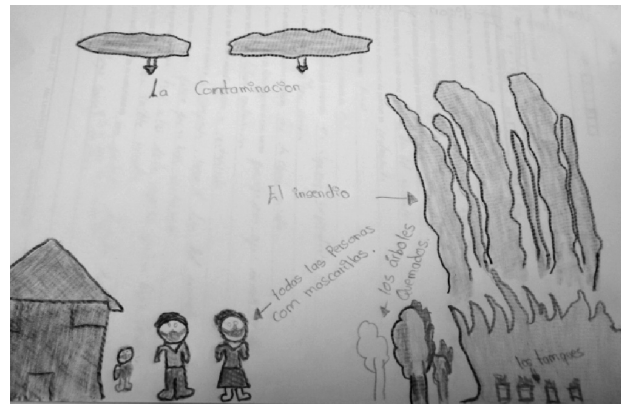 La Contaminacion
El incendio
todas las Personas
con mascarillas.
los árboles
Quemados.
los tanques